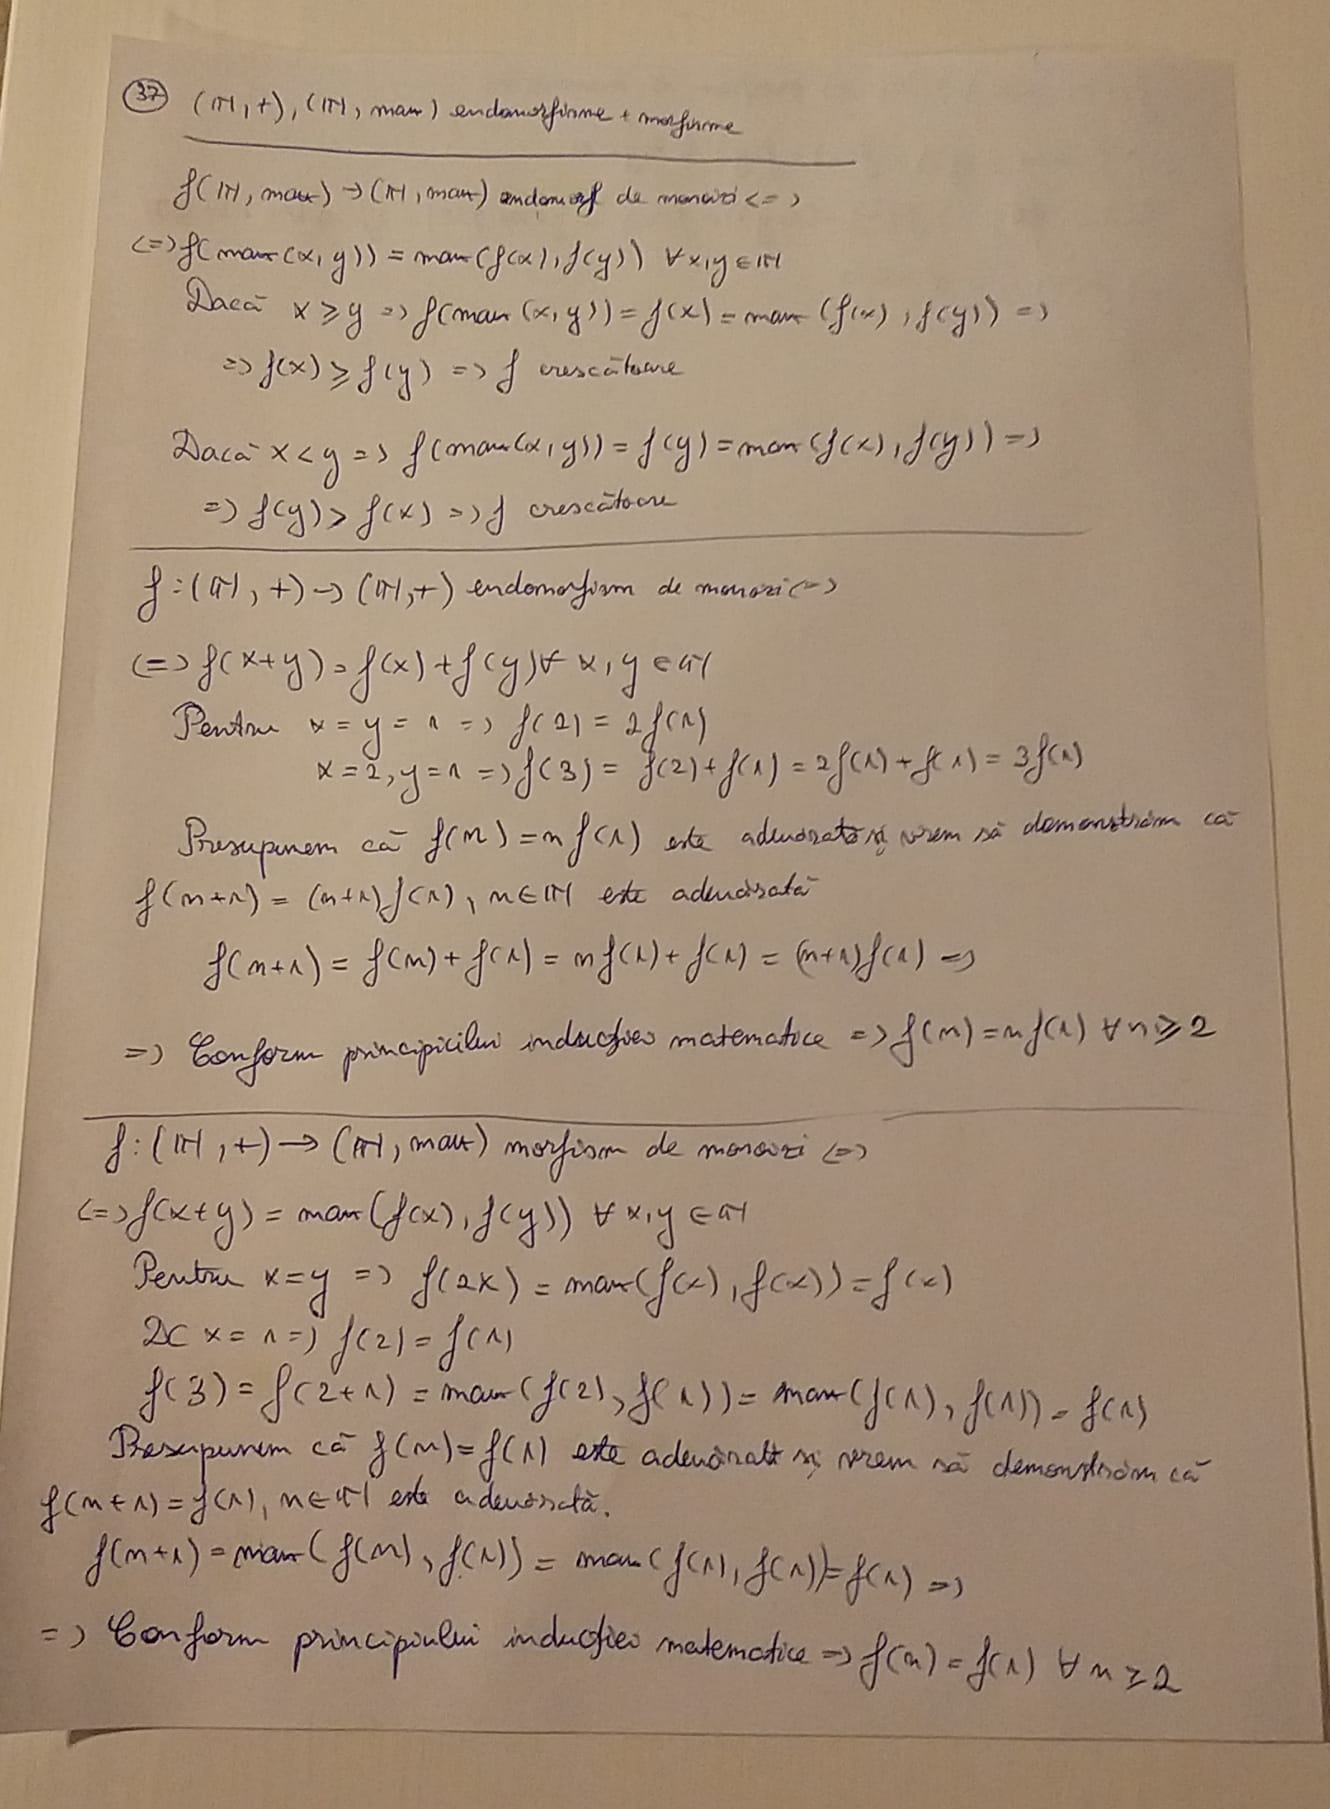 37 (ℕ, +), (ℕ, max) endomorfisme + morfisme
f(ℕ, max) → (ℕ, max) endomorf de monoizi <=>
<=> f(max(x, y)) = max(f(x), f(y)) ∀ x, y ∈ ℕ
Dacă x ≥ y => f(max(x, y)) = f(x) = max(f(x), f(y)) =>
=> f(x) ≥ f(y) => f crescătoare
Dacă x < y => f(max(x, y)) = f(y) = max(f(x), f(y)) =>
=> f(y) > f(x) => f crescătoare
f : (ℕ, +) → (ℕ, +) endomorfism de monoizi <=>
<=> f(x+y) = f(x) + f(y) ∀ x, y ∈ ℕ
Pentru x = y = 1 => f(2) = 2f(1)
x = 2, y = 1 => f(3) = f(2) + f(1) = 2f(1) + f(1) = 3f(1)
Presupunem că f(n) = n f(1) este adevărată și vrem să demonstrăm că
f(n+1) = (n+1) f(1), n ∈ ℕ este adevărată
f(n+1) = f(n) + f(1) = n f(1) + f(1) = (n+1) f(1) =>
=> Conform principiului inducției matematice => f(n) = n f(1) ∀ n ≥ 2
f : (ℕ, +) → (ℕ, max) morfism de monoizi <=>
<=> f(x+y) = max(f(x), f(y)) ∀ x, y ∈ ℕ
Pentru x = y => f(2x) = max(f(x), f(x)) = f(x)
Dc x = 1 => f(2) = f(1)
f(3) = f(2+1) = max(f(2), f(1)) = max(f(1), f(1)) = f(1)
Presupunem că f(n) = f(1) este adevărată și vrem să demonstrăm că
f(n+1) = f(1), n ∈ ℕ este adevărată.
f(n+1) = max(f(n), f(1)) = max(f(1), f(1)) = f(1) =>
=> Conform principiului inducției matematice => f(n) = f(1) ∀ n ≥ 2